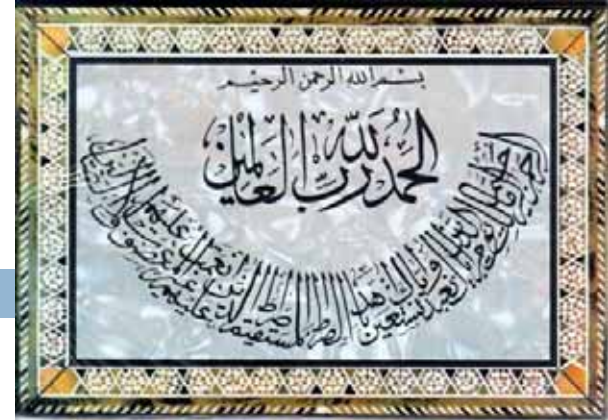 بسم الله الرحمن الرحيم
الحمد لله رب العالمين
الرحمن الرحيم مالك يوم الدين إياك نعبد وإياك نستعين اهدنا الصراط المستقيم صراط الذين أنعمت عليهم غير المغضوب عليهم ولا الضالين